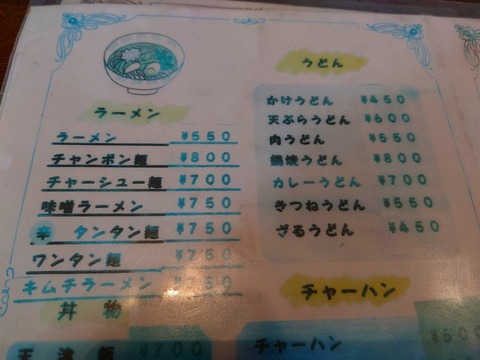 ラーメン
ラーメン ¥550
チャンポン麺 ¥800
チャーシュー麺 ¥700
味噌ラーメン ¥750
辛 タンタン麺 ¥750
ワンタン麺 ¥750
キムチラーメン ¥750
丼物
天津飯 ¥700
うどん
かけうどん ¥450
天ぷらうどん ¥600
肉うどん ¥550
鍋焼うどん ¥800
カレーうどん ¥700
きつねうどん ¥550
ざるうどん ¥450
チャーハン
チャーハン ¥600